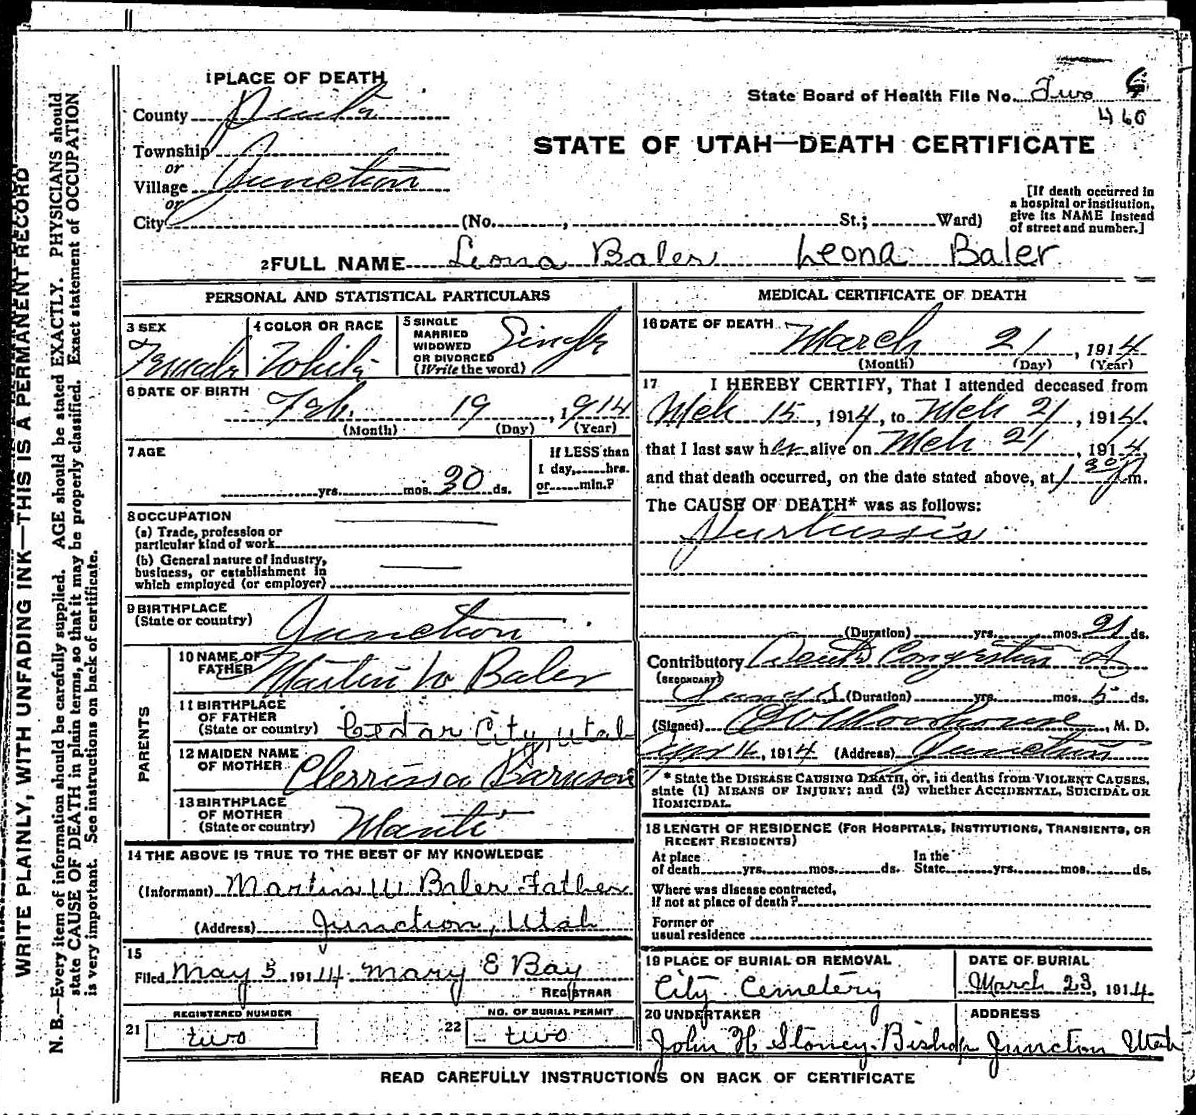 1 PLACE OF DEATH
County Piute
State Board of Health File No. Two
460
Township
or
Village Junction
or
City (No. , St.; Ward)
STATE OF UTAH—DEATH CERTIFICATE
[If death occurred in
a hospital or institution,
give its NAME instead
of street and number.]
2 FULL NAME Leona Baler Leona Baler
PERSONAL AND STATISTICAL PARTICULARS
3 SEX Female
4 COLOR OR RACE White
5 SINGLE
MARRIED
WIDOWED
OR DIVORCED
(Write the word) Single
6 DATE OF BIRTH
Feb. 19, 1914
(Month) (Day) (Year)
7 AGE
yrs. mos. 30 ds.
If LESS than
1 day, hrs.
or min.?
8 OCCUPATION
(a) Trade, profession or
particular kind of work
(b) General nature of industry,
business, or establishment in
which employed (or employer)
9 BIRTHPLACE
(State or country) Junction
PARENTS
10 NAME OF
FATHER Martin W Baler
11 BIRTHPLACE
OF FATHER
(State or country) Cedar City, Utah
12 MAIDEN NAME
OF MOTHER Clerrissa
13 BIRTHPLACE
OF MOTHER
(State or country) Manti
14 THE ABOVE IS TRUE TO THE BEST OF MY KNOWLEDGE
(Informant) Martin W Baler Father
(Address) Junction, Utah
15
Filed May 5 1914 Mary E Bay
REGISTRAR
REGISTERED NUMBER
21 two
NO. OF BURIAL PERMIT
22 two
MEDICAL CERTIFICATE OF DEATH
16 DATE OF DEATH
March 21, 1914
(Month) (Day) (Year)
17 I HEREBY CERTIFY, That I attended deceased from
Mch 15, 1914, to Mch 21, 1914,
that I last saw her alive on Mch 21, 1914,
and that death occurred, on the date stated above, at 1 30 m.
The CAUSE OF DEATH* was as follows:
Purtussis
(Duration) yrs. mos. 21 ds.
Contributory Acute Congestion of
(SECONDARY)
Lungs (Duration) yrs. mos. 5 ds.
(Signed) M. D.
16, 1914 (Address) Junction
* State the DISEASE CAUSING DEATH, or, in deaths from VIOLENT CAUSES,
state (1) MEANS OF INJURY; and (2) whether ACCIDENTAL, SUICIDAL OR
HOMICIDAL.
18 LENGTH OF RESIDENCE (FOR HOSPITALS, INSTITUTIONS, TRANSIENTS, OR
RECENT RESIDENTS)
At place In the
of death yrs. mos. ds. State yrs. mos. ds.
Where was disease contracted,
If not at place of death?
Former or
usual residence
19 PLACE OF BURIAL OR REMOVAL
City Cemetery
DATE OF BURIAL
March 23, 1914
20 UNDERTAKER ADDRESS
John H. Stoney Bishop Junction Utah
READ CAREFULLY INSTRUCTIONS ON BACK OF CERTIFICATE
WRITE PLAINLY, WITH UNFADING INK—THIS IS A PERMANENT RECORD
N. B.—Every item of information should be carefully supplied. AGE should be stated EXACTLY. PHYSICIANS should
state CAUSE OF DEATH in plain terms, so that it may be properly classified. Exact statement of OCCUPATION
is very important. See instructions on back of certificate.